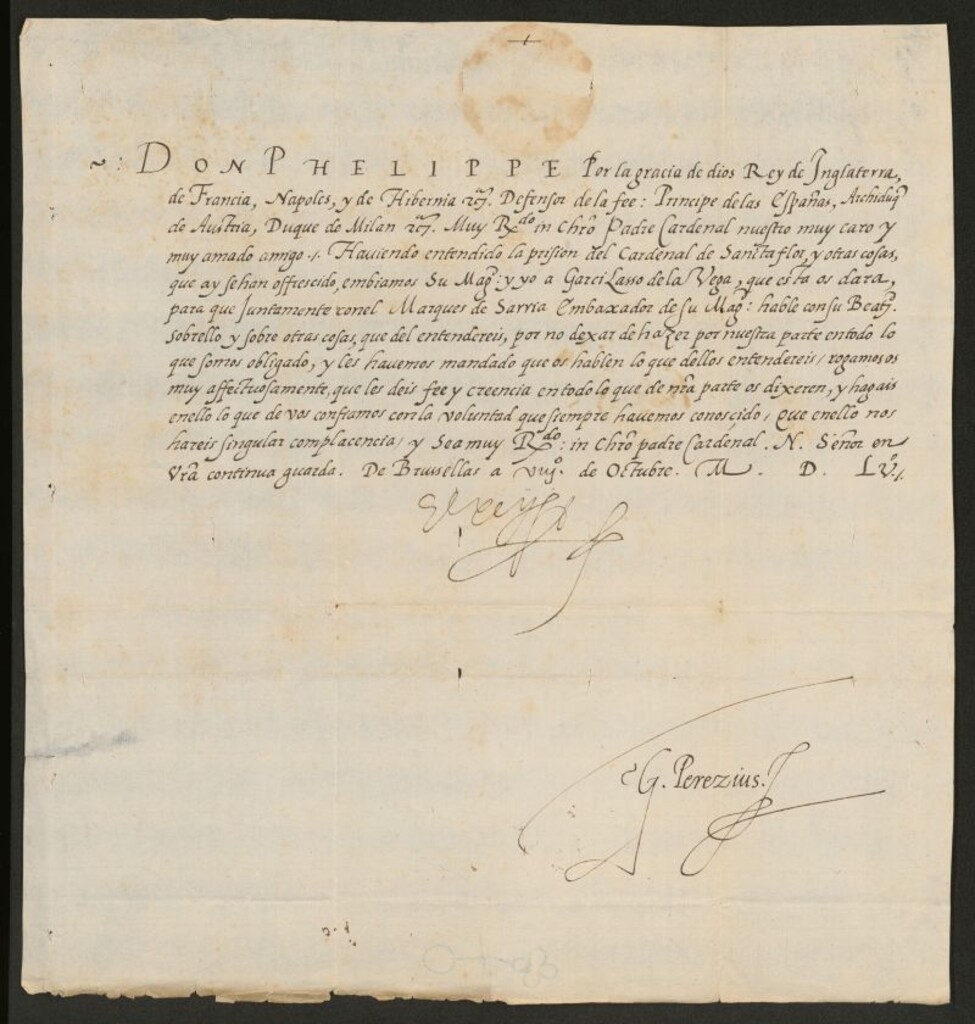 DON PHELIPPE Por la gracia de dios Rey de Inglaterra,
de Francia, Napoles, y de Hibernia &c. Defensor de la fee: Principe de las Españas, Archiduq̃
de Austria, Duque de Milan &c. Muy R.do in Chr̃o Padre Cardenal nuestro muy caro y
muy amado amigo ./. Haviendo entendido la prision del Cardenal de Sanctaflor, y otras cosas,
que ay se han offrescido, embiamos Su Mag.: y yo a Garci Lasso de la Vega, que esta os dara,
para que Juntamente conel Marques de Sarria Embaxador de su Mag.: hable con su Beat.
sobrello y sobre otras cosas, que del entendereis, por no dexar de hazer por nuestra parte en todo lo
que somos obligado, y les havemos mandado que os hablen lo que dellos entendereis / rogamos os
muy affectuosamente, que les deis fee y creencia en todo lo que de nr̃a parte os dixeren, y hagais
enello lo que de vos confiamos con la voluntad que siempre havemos conoscido, que enello nos
hareis singular complacencia / y Sea muy R.do: in Chr̃o padre Cardenal. N. Señor en
Vr̃a continua guarda. De Brussellas a viij.º de Octubre. M. D. LV./.
El rey
G. Perezius.